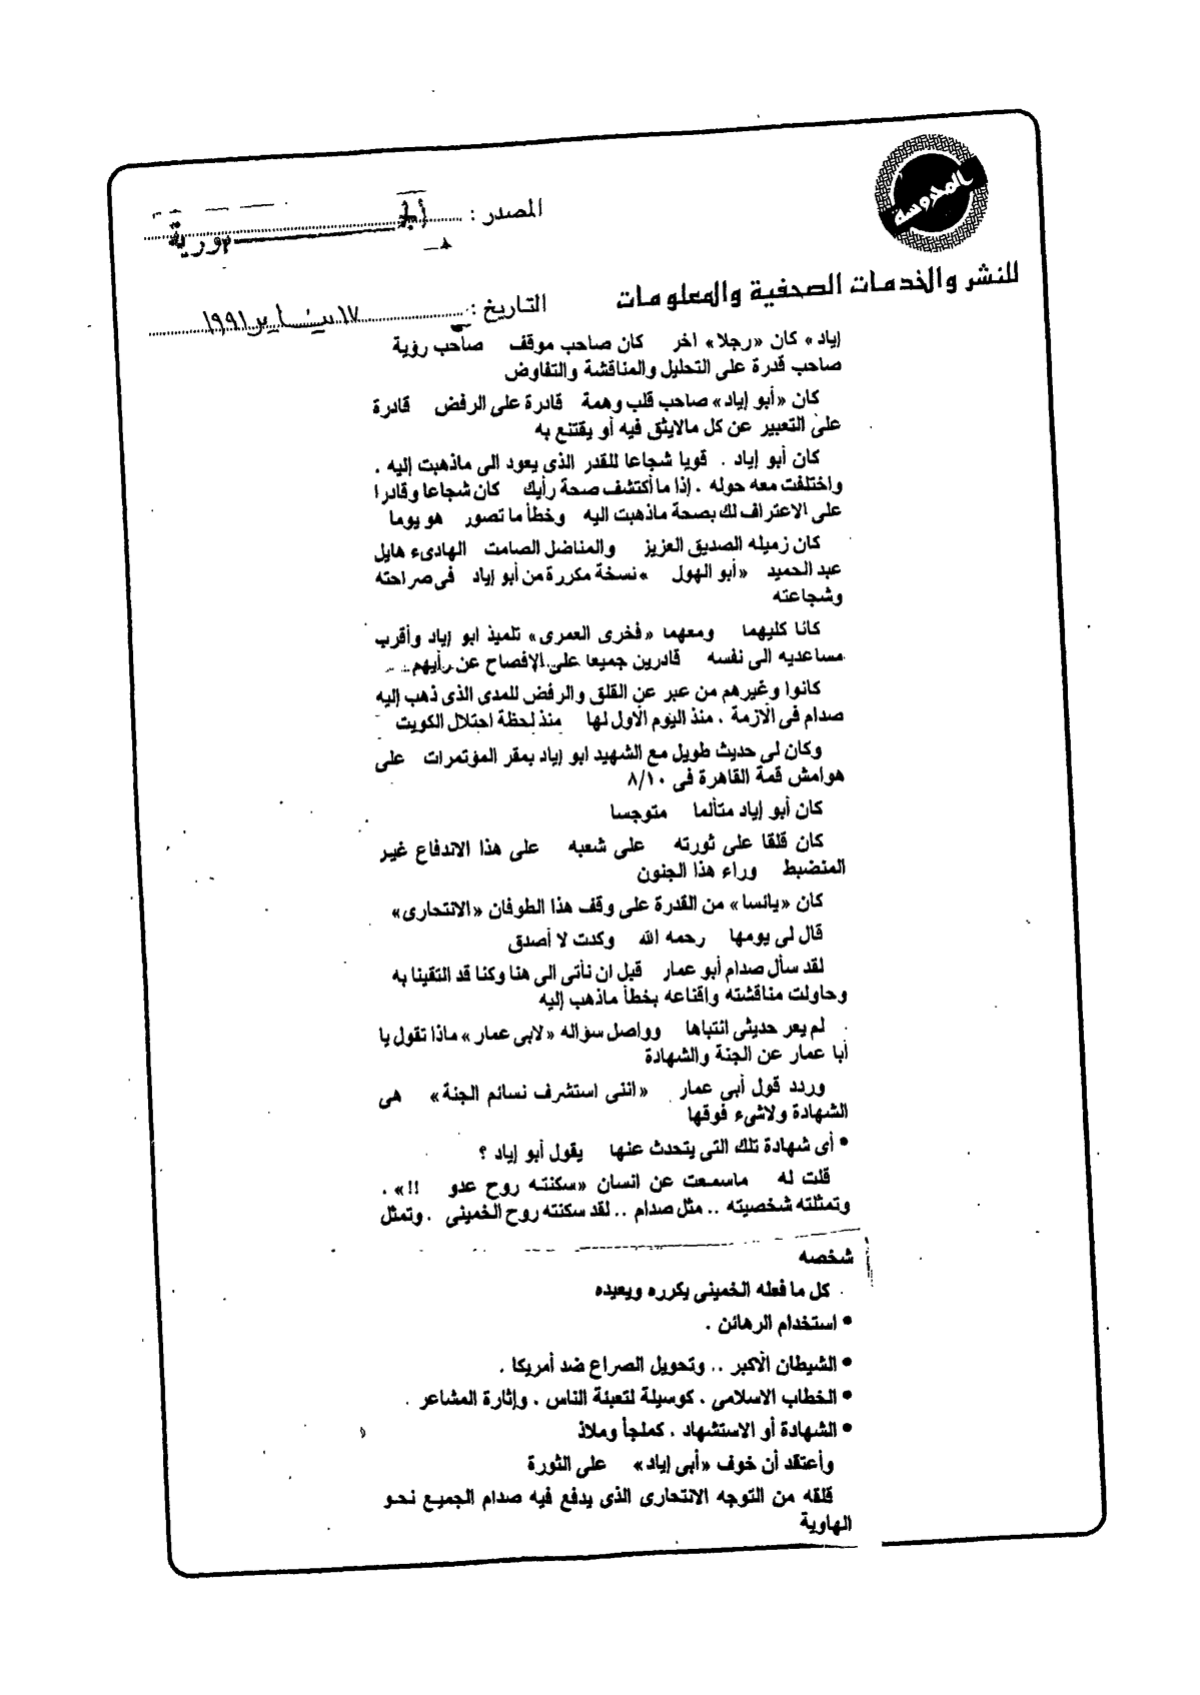 المدروسة
المصدر :
الجمهورية
للنشر والخدمات الصحفية والمعلومات
التاريخ : ١٧ يناير ١٩٩١
إياد» كان «رجلا» اخر كان صاحب موقف صاحب رؤية
صاحب قدرة على التحليل والمناقشة والتفاوض
كان «أبو إياد» صاحب قلب وهمة قادرة على الرفض قادرة
على التعبير عن كل مالايثق فيه أو يقتنع به
كان أبو إياد . قويا شجاعا للقدر الذى يعود الى ماذهبت إليه .
واختلفت معه حوله . إذا ما أكتشف صحة رأيك كان شجاعا وقادرا
على الاعتراف لك بصحة ماذهبت اليه وخطأ ما تصور هو يوما
كان زميله الصديق العزيز والمناضل الصامت الهادىء هايل
عبد الحميد «أبو الهول » نسخة مكررة من أبو إياد فى صراحته
وشجاعته
كانا كليهما ومعهما «فخرى العمرى» تلميذ ابو إياد وأقرب
مساعديه الى نفسه قادرين جميعا على الإفصاح عن رأيهم
كانوا وغيرهم من عبر عن القلق والرفض للمدى الذى ذهب إليه
صدام فى الأزمة . منذ اليوم الأول لها منذ لحظة احتلال الكويت
وكان لى حديث طويل مع الشهيد ابو إياد بمقر المؤتمرات على
هوامش قمة القاهرة فى ٨/١٠
كان أبو إياد متألما متوجسا
كان قلقا على ثورته على شعبه على هذا الاندفاع غير
المنضبط وراء هذا الجنون
كان «يائسا» من القدرة على وقف هذا الطوفان «الانتحارى»
قال لى يومها رحمه الله وكدت لا أصدق
لقد سأل صدام أبو عمار قبل ان نأتى الى هنا وكنا قد التقينا به
وحاولت مناقشته واقناعه بخطأ ماذهب إليه
لم يعر حديثى انتباها وواصل سؤاله «لابى عمار» ماذا تقول يا
أبا عمار عن الجنة والشهادة
وردد قول أبى عمار «اننى استشرف نسائم الجنة» هى
الشهادة ولاشىء فوقها
• أى شهادة تلك التى يتحدث عنها يقول أبو إياد ؟
قلت له ماسمعت عن انسان «سكنته روح عدو !!» .
وتمثلته شخصيته .. مثل صدام .. لقد سكنته روح الخمينى . وتمثل
شخصه
كل ما فعله الخمينى يكرره ويعيده
• استخدام الرهائن .
• الشيطان الأكبر .. وتحويل الصراع ضد أمريكا .
• الخطاب الاسلامى . كوسيلة لتعبئة الناس . وإثارة المشاعر .
• الشهادة أو الاستشهاد . كملجأ وملاذ
وأعتقد أن خوف «أبى إياد» على الثورة
قلقه من التوجه الانتحارى الذى يدفع فيه صدام الجميع نحو
الهاوية